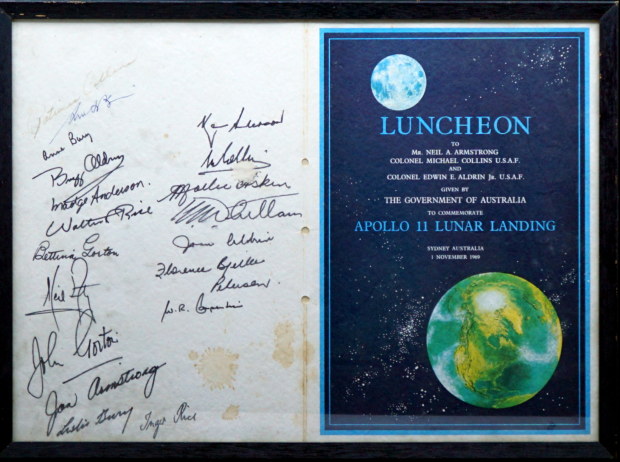 Anne Bury
Buzz Aldrin
Madge Anderson.
Walter Rice
Bettina Gorton
Neil
John Gorton
Jan Armstrong
Leslie Bury
Rice
Ken Anderson
Mollie
Joan Aldrin
Florence
Petersen.
W.R.
LUNCHEON
TO
MR. NEIL A. ARMSTRONG
COLONEL MICHAEL COLLINS U.S.A.F.
AND
COLONEL EDWIN E. ALDRIN JR. U.S.A.F.
GIVEN BY
THE GOVERNMENT OF AUSTRALIA
TO COMMEMORATE
APOLLO 11 LUNAR LANDING
SYDNEY AUSTRALIA
1 NOVEMBER 1969